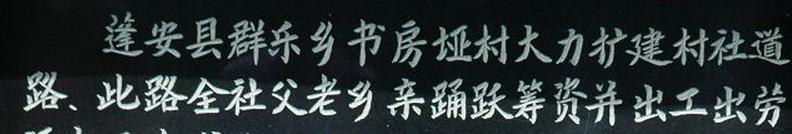 蓬安县群乐乡书房垭村大力扩建村社道
路、此路全社父老乡亲踊跃筹资并出工出劳